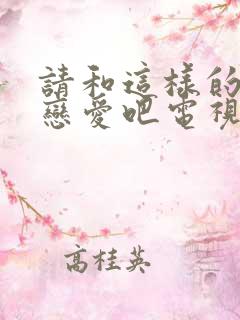 請和這樣的
戀愛吧電視
高桂英